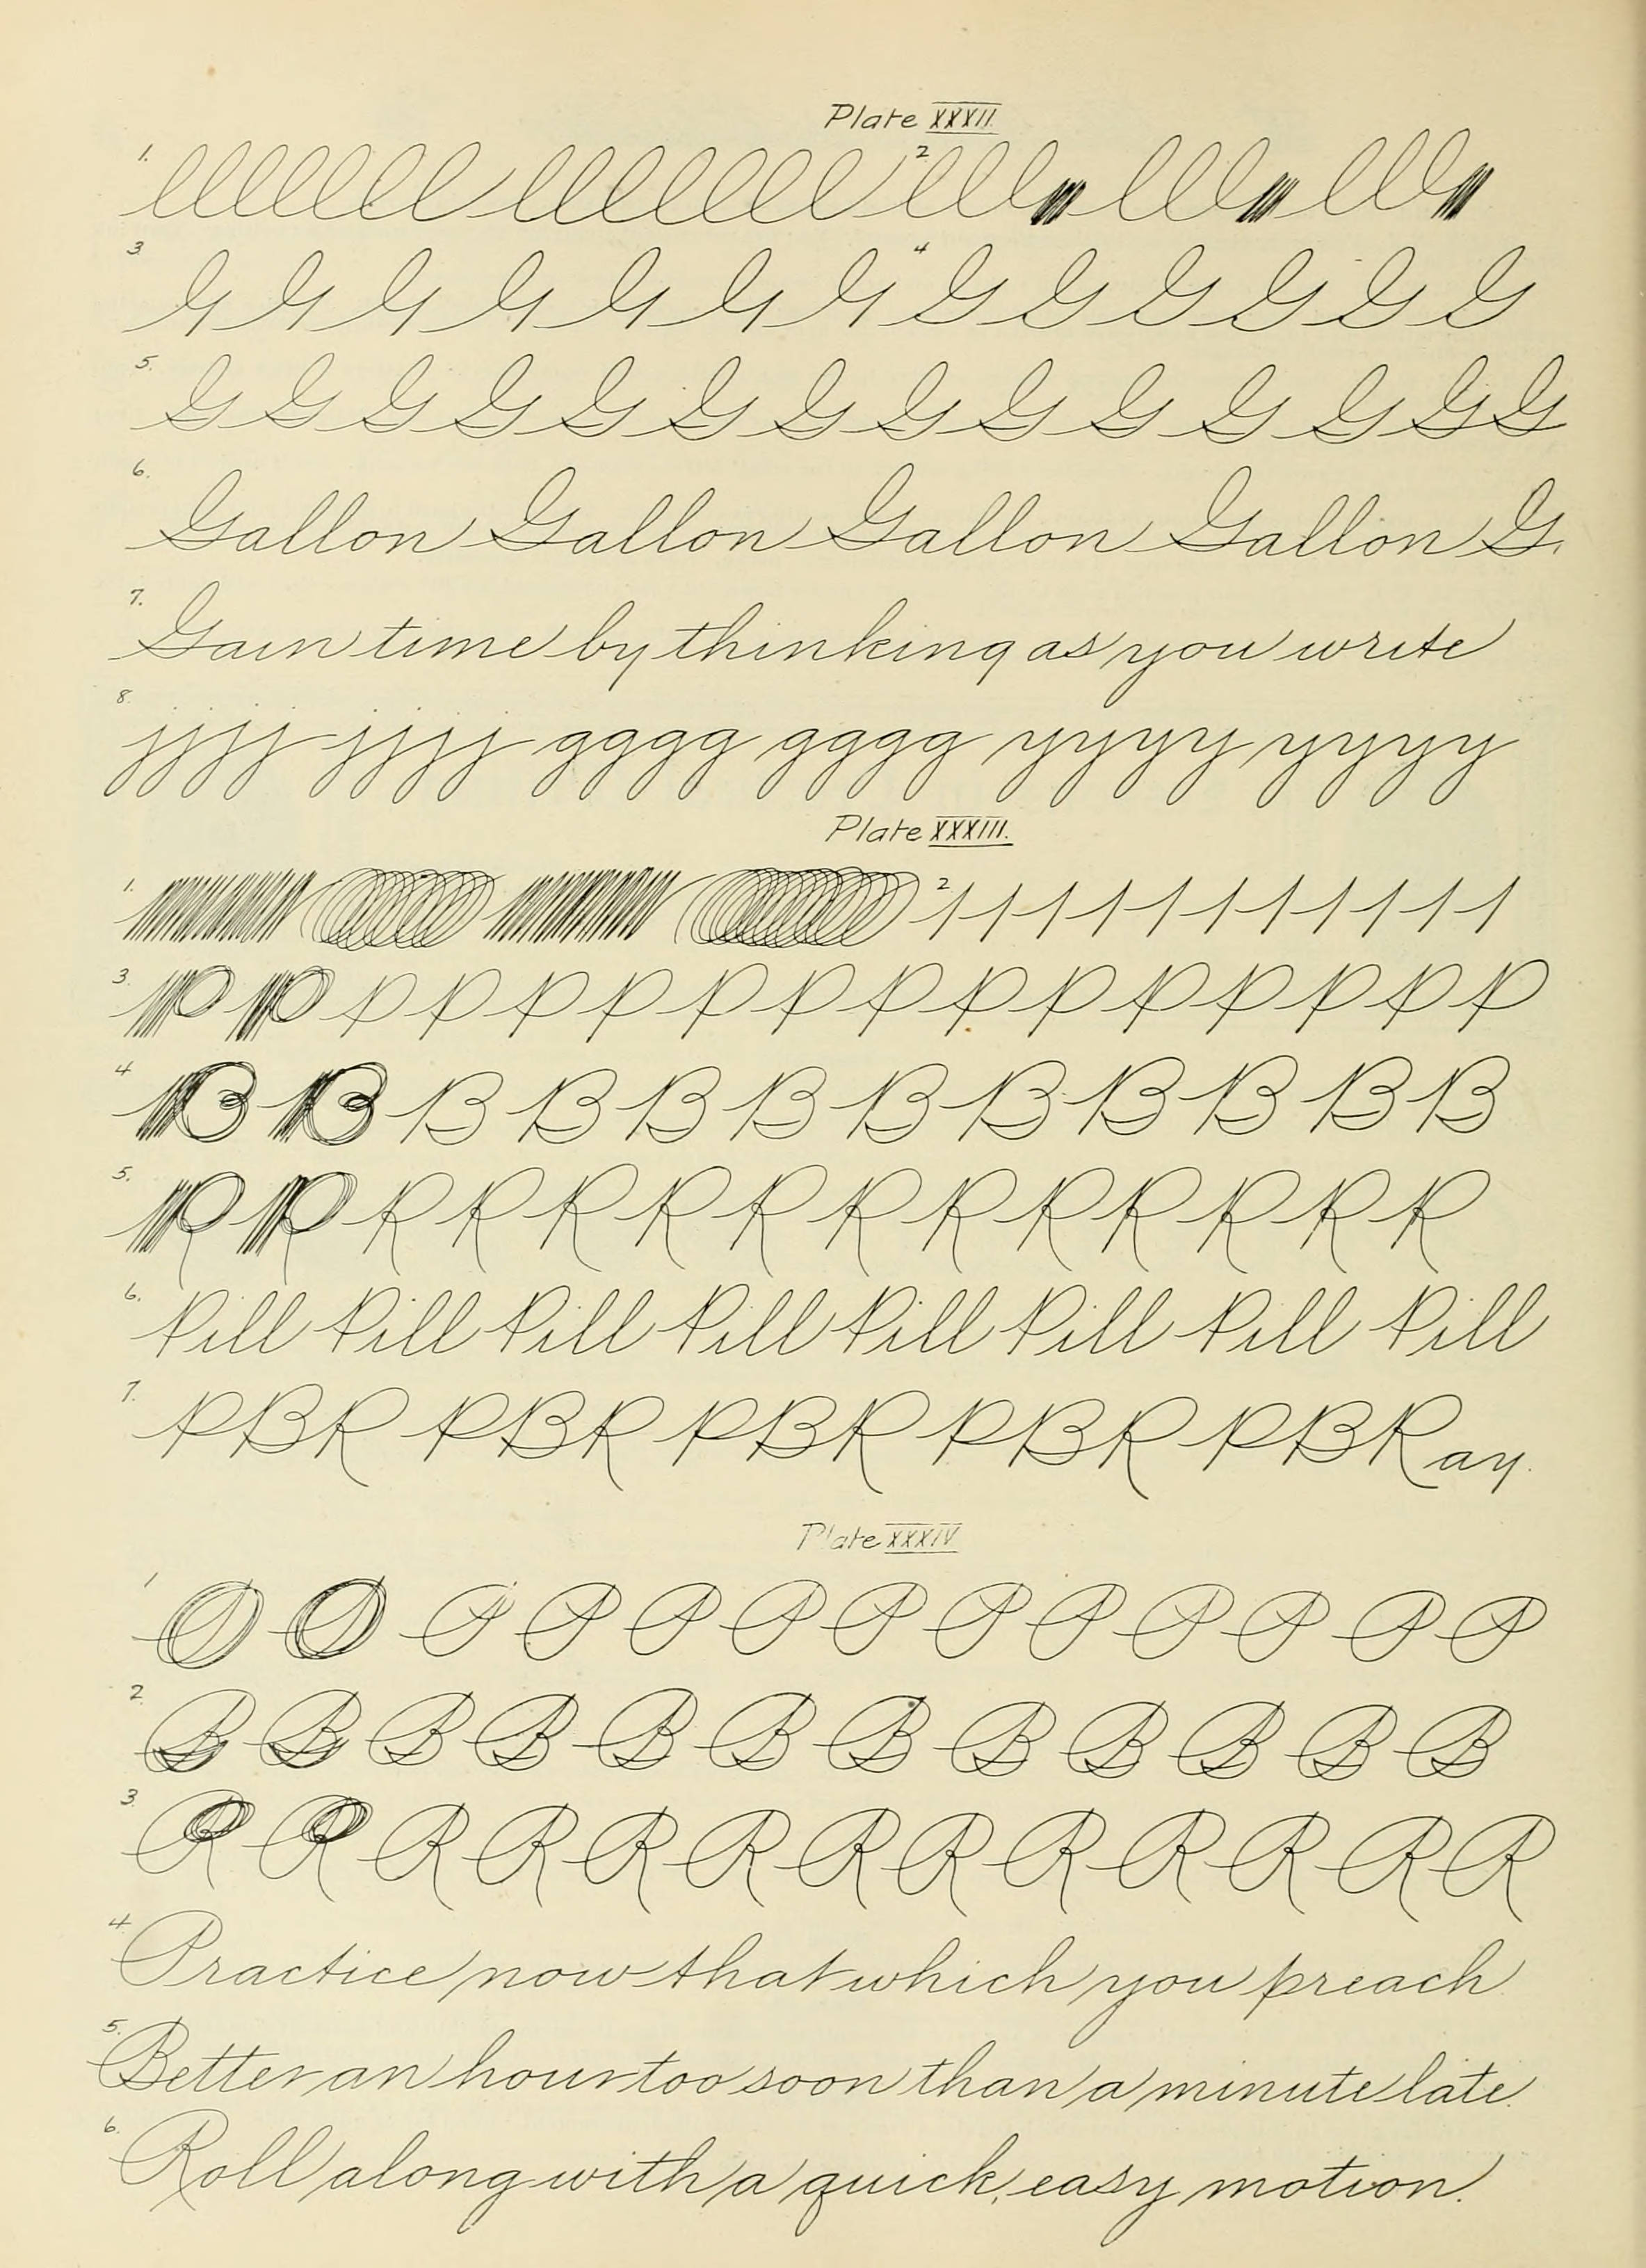 Plate XXXII.
1. lllllll lllllll 2 lll lll lll
3. 4
5. G G G G G G G G G G G G G G
6. Gallon Gallon Gallon Gallon G.
7. Gain time by thinking as you write
8. jjjj jjjj gggg gggg yyyy yyyy
Plate XXXIII.
1. 2 1 1 1 1 1 1 1 1 1 1 1
3. P P P P P P P P P P P P P P P P
4 B B B B B B B B B B B B
5. R R R R R R R R R R R R R R
6. Pill Pill Pill Pill Pill Pill Pill Pill
7. PBR PBR PBR PBR PBRay.
Plate XXXIV
1 P P P P P P P P P P P P P
2. B B B B B B B B B B B B
3. R R R R R R R R R R R R R
4 Practice now that which you preach
5. Better an hour too soon than a minute late.
6. Roll along with a quick, easy motion.